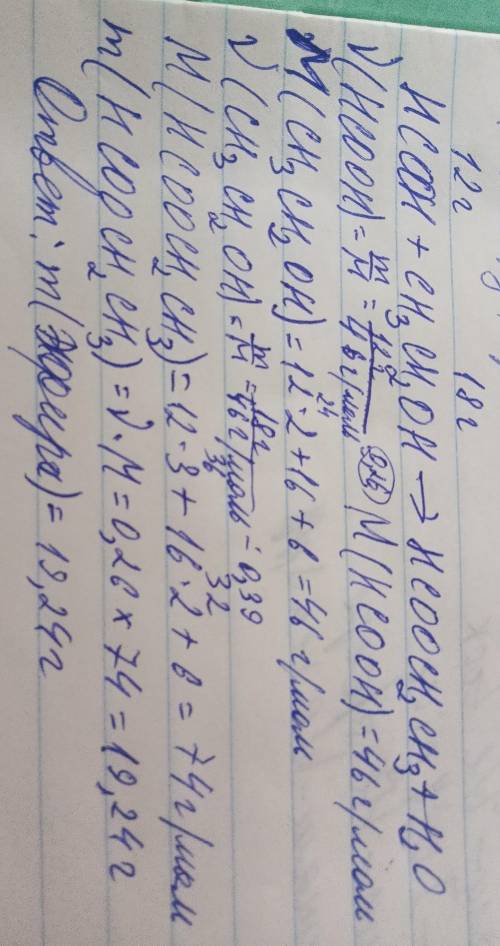 12г 18г
HCOOH + CH3CH2OH → HCOOCH2CH3 + H2O
ν(HCOOH) = m/M = 12г/46г/моль M(HCOOH) = 46г/моль
M(CH3CH2OH) = 12·2 + 16 + 6 = 46г/моль
24
ν(CH3CH2OH) = m/M = 18г/46г/моль = 0,39
36 32
M(HCOOCH2CH3) = 12·3 + 16·2 + 6 = 74г/моль
m(HCOOCH2CH3) = ν·M = 0,26 × 74 = 19,24г
Ответ: m(эфира) = 19,24г